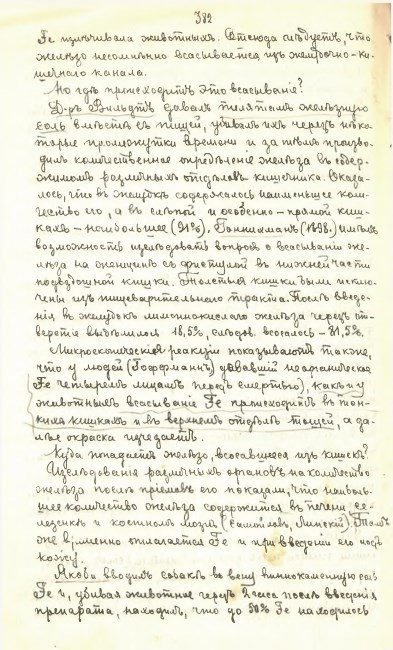 382
Fe излѣчивала животныхъ. Отсюда слѣдуетъ, что
желѣзо несомнѣнно всасывается изъ желудочно-ки-
шечнаго канала.
Но гдѣ происходитъ это всасываніе?
Д-ръ Вильдтъ давалъ телятамъ желѣзную
соль вмѣстѣ съ пищей, убивалъ ихъ черезъ нѣко-
торые промежутки времени и затѣмъ произво-
дилъ количественное опредѣленіе желѣза въ содер-
жимомъ различныхъ отдѣловъ кишечника. Оказа-
лось, что въ желудкѣ содержалось наименьшее коли-
чество его, а въ слѣпой и особенно - прямой киш-
кахъ - наибольшее (21%). (1898.) имѣлъ
возможность изслѣдовать вопросъ о всасываніи же-
лѣза на женщинѣ съ фистулой въ нижней части
подвздошной кишки. Толстыя кишки были исклю-
чены изъ пищеварительнаго тракта. Послѣ введе-
нія въ желудокъ лимоннокислаго желѣза черезъ от-
верстіе выдѣлилось 18,5%, слѣдов. всосалось - 81,5%.
Микроскопическія реакціи показываютъ также,
что у людей (Гофманнъ) дававшій неорганическое
Fe четыремъ лицамъ передъ смертью), какъ и у
животныхъ всасываніе Fe происходитъ въ тон-
кихъ кишкахъ и въ верхнемъ отдѣлѣ тощей, а да-
лѣе окраска исчезаетъ.
Куда попадаетъ желѣзо, всосавшееся изъ кишекъ?
Изслѣдованія различныхъ органовъ на количество
желѣза послѣ пріемовъ его показали, что наиболь-
шее количество желѣза содержится въ печени, се-
лезенкѣ и костномъ мозгу (Самойловъ, Липскій). Тамъ
же именно отлагается Fe и при введеніи его подъ
кожу.
Якоби вводилъ собакѣ въ вену виннокаменную соль
Fe и, убивая животное черезъ 2 часа послѣ введенія
препарата, находилъ, что до 50% Fe находилось